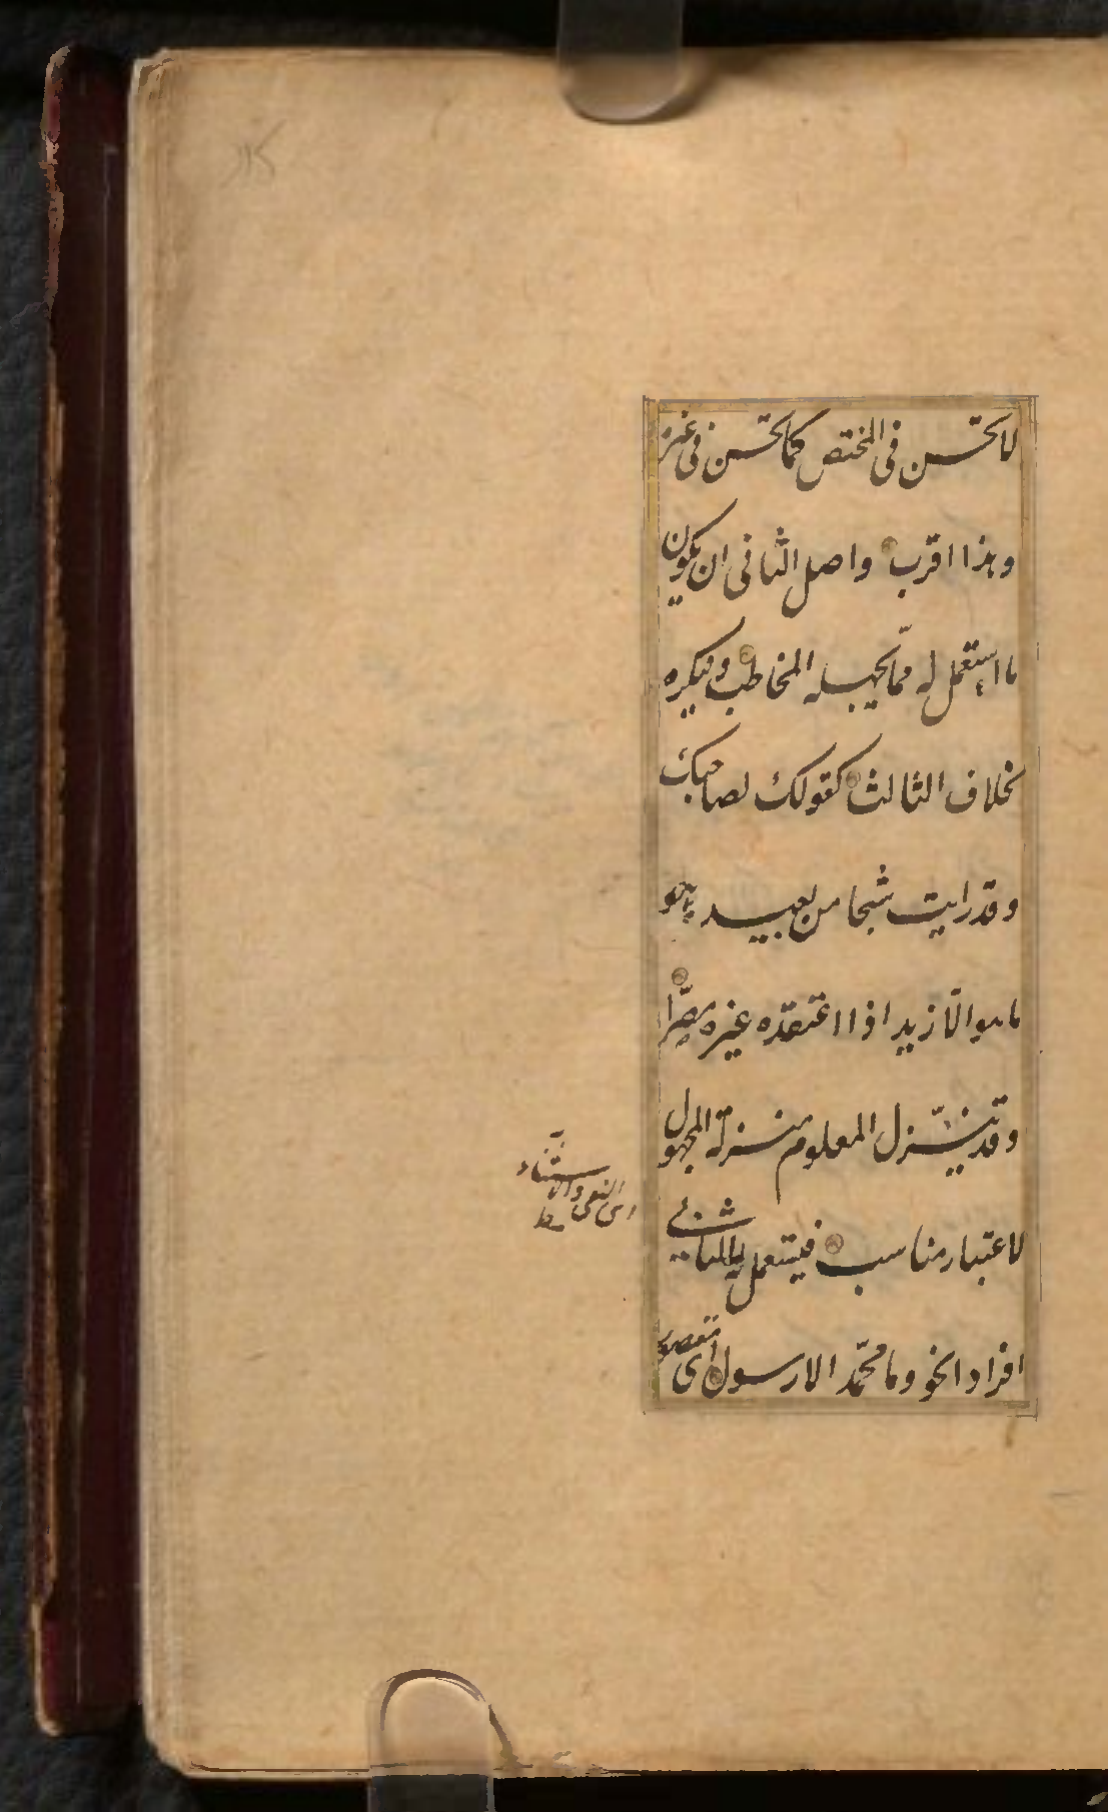 لا تحسن فى المختص كما تحسن فى غيره
وهذا اقرب واصل الثانى ان يكون
ما استعمل له مما يجهله المخاطب وينكره
بخلاف الثالث كقولك لصاحبك
وقد رايت شبحا من بعيد ما هو
ما هو الا زيد اذا اعتقده غيره مصرّا
وقد ينزّل المعلوم منزلة المجهول
لاعتبار مناسب فيستعمل له الثانى
اى النفى والاستثناء
افرادا نحو وما محمّد الا رسول اى مقصور